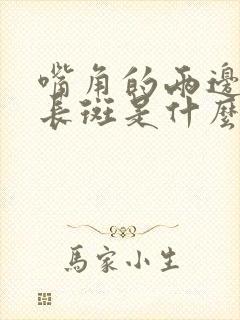 嘴角的兩邊
長斑是什麼
馬家小生